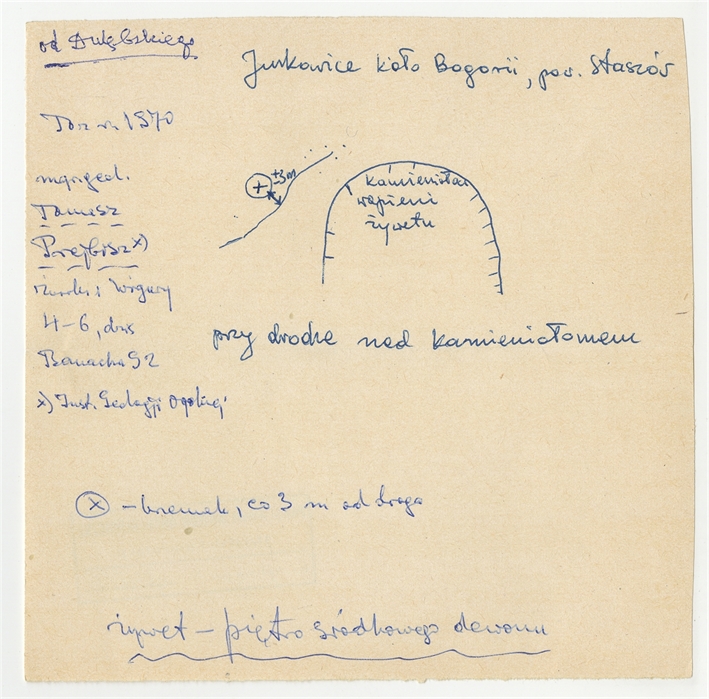 od Dulębskiego
Jurkowice koło Bogorii, pow. Staszów
1970
mgr geol.
Tomasz
Przejbisz x)
Żwirki i Wigury
4-6,
Banacha
x) Inst. Geologii Ogólnej
±3m
kamieniołom
wapieni
żywetu
przy drodze nad kamieniołomem
x – krzemień, co 3 m od drogi
żywet – piętro środkowego dewonu